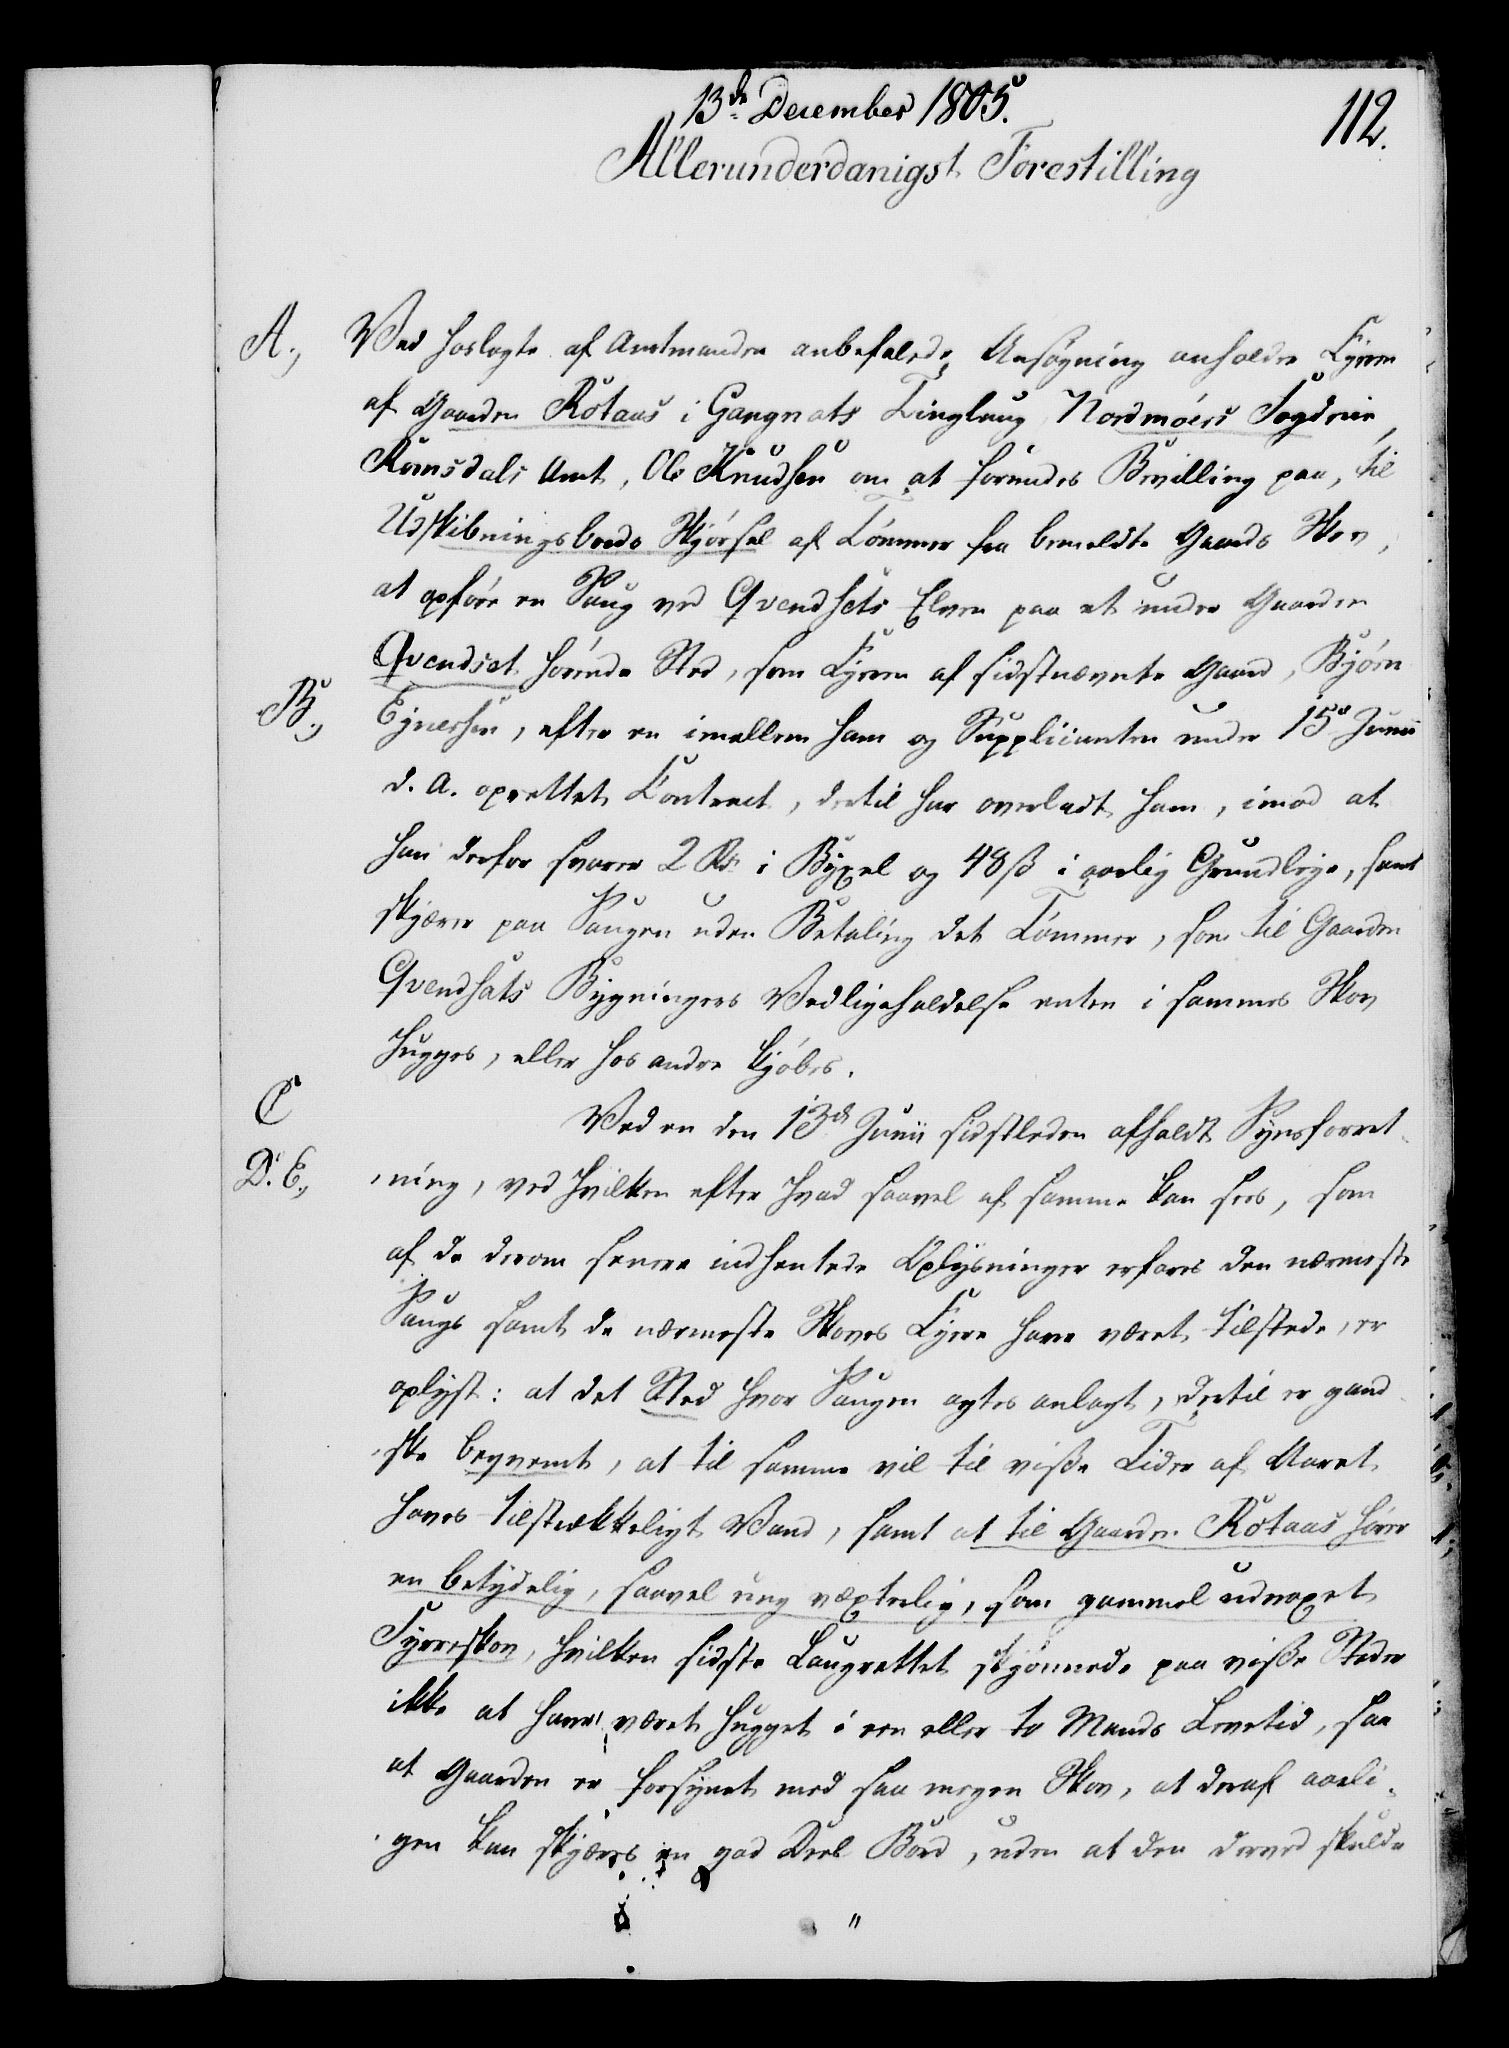 13de December 1805.
112.
Allerunderdanigst Forestilling
A.,
Ved hoslagte af Amtmanden anbefalede Ansøgning anholder Eyeren
af Gaarden Røtaas i Gangnats Tinglaug Nordmøers Fogderie,
Romsdals Amt, Ole Knudsen om at forundes Bevilling paa, til
Udskibningsbords Skjørsel af Tømmer fra bemeldte Gaards Skov,
at opføre en Saug ved Qvendsets Elven paa et under Gaarden
Qvendset hørende Sted, som Eyeren af sidstnævnte Gaard, Bjørn
B.,
Ejnersen, efter en imellem ham og Supplicanten under 15de Junii
d. A. oprettet Contract, dertil har overladt ham, imod at
han derfor svarer 2 Rd. i Bygsel og 48 ß i aarlig Grundleje, samt
skjærer paa Saugen uden Betaling det Tømmer, som til Gaarden
Qvendsæts Bygningers Vedligeholdelse enten i sammes Skov
hugges, eller hos andre kjøbes.
C
Ved en den 13de Junii sidstleden afholdt Synsforret-
D. E.,
ning, ved hvilken efter hvad saavel af samme kan sees, som
af de derom senere indhentede Oplysninger erfares den nærmeste
Saugs samt de nærmeste Skoves Eyere have været tilstede, er
oplyst: at det Sted hvor Saugen agtes anlagt, dertil er gand-
ske beqvemt, at til samme vil til visse Tider af Aaret
haves tilstrækkeligt Vand, samt at til Gaarden Røtaas hører
en betydelig, saavel ung væxterlig, som gammel udvoxet
Fyrreskov, hvilken sidste Laugrettet skjønnede paa visse Steder
ikke at have været hugget i een eller to Mands Levetid, saa
at Gaarden er forsynet med saa megen Skov, at deraf aarli-
gen kan skjæres en god Deel Bord, uden at den derved skulde
"